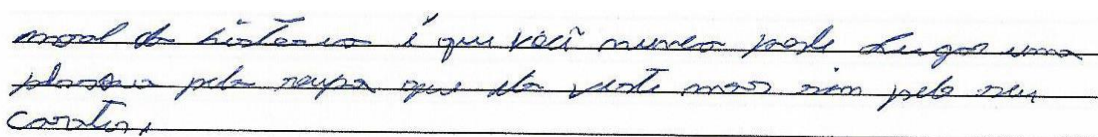 moral da historia é que você nunca pode Lugar uma
pessoa pela roupa que ela veste mas sim pelo seu
carater,